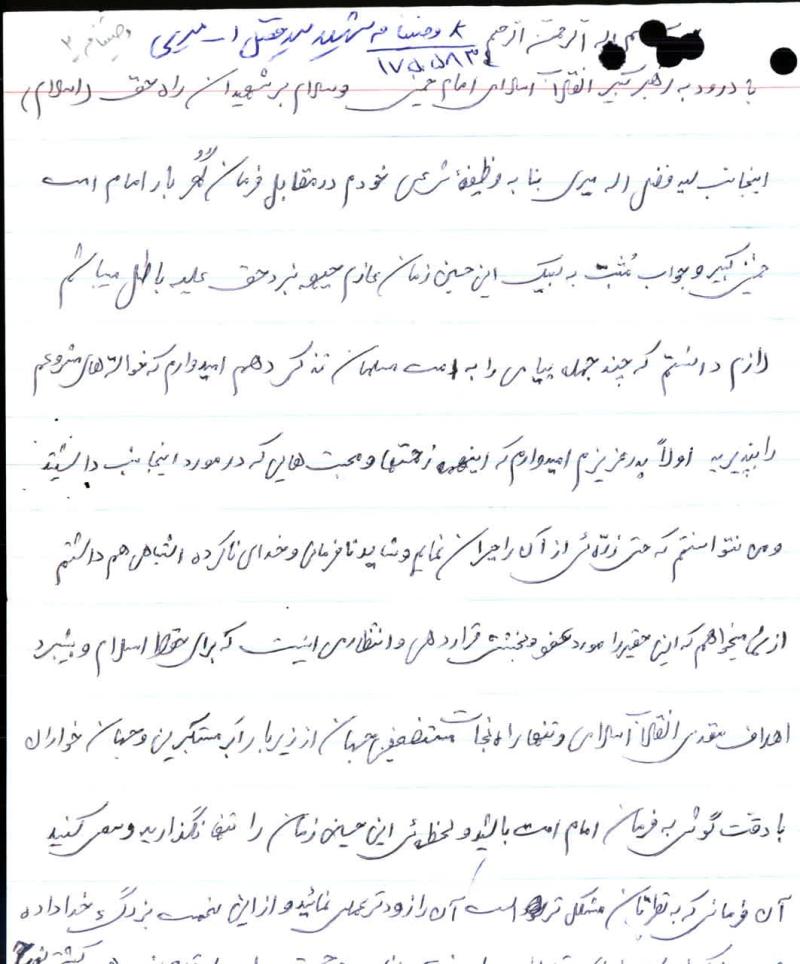 بسم اله الرحمن الرحیم * وصیتنامه شهید سید فضل ا.. میری وصیتنامه ۲
۱۷۵۵۸۳۴
با درود به رهبر کبیر انقلاب اسلامی امام خمینی و سلام بر شهیدان راه حق (اسلام)
اینجانب سید فضل اله میری بنا به وظیفهٔ شرعی خودم در مقابل فرمان گهر بار امام امت
خمینی کبیر و جواب مثبت به لبیک این حسین زمان عازم جبهه نبرد حق علیه باطل میباشم
لازم دانستم که چند جمله پیامی را به امت مسلمان تذکر دهم امیدوارم که خواسته‌های مشروعم
را بپذیرید اولاً پدر عزیزم امیدوارم که اینهمه زحمتها و محبت هایی که در مورد اینجانب داشتید
و من نتوانستم که حتی ذره‌ئی از آن را جبران نمایم و شاید نافرمانی و خدای ناکرده اشتباهی هم داشتم
از شما میخواهم که این حقیر را مورد عفو و بخشش قرار دهی و انتظارم اینست که برای حفظ اسلام و پیشبرد
اهداف مقدس انقلاب اسلامی و تنها راه نجات مستضعفین جهان از زیر بار ابر مستکبرین و جهان خواران
با دقت گوش به فرمان امام امت باشید و لحظه‌ئی این حسین زمان را تنها نگذارید و سعی کنید
آن فرمانی که به نظرتان مشکل تر است آن را زودتر عملی نمائید و از این نعمت بزرگ خداداده